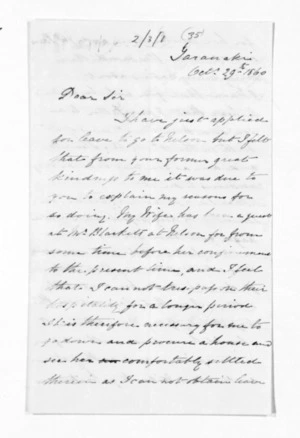 2/3/8 (35
Taranaki
Octr. 29th 1860
Dear Sir
I have just applied
for leave to go to Nelson but I felt
that from your former great
kindness to me it was due to
you to explain my reasons for
so doing. My Wife has been a guest
at Mr Blackett at Nelson for from
some time before her confinement
to the present time, and I feel
that I can not tres-pass on their
hospitality for a longer period
it is therefore necessary for me to
go down and procure a house and
see her comfortably settled
therein as I can not obtain leave